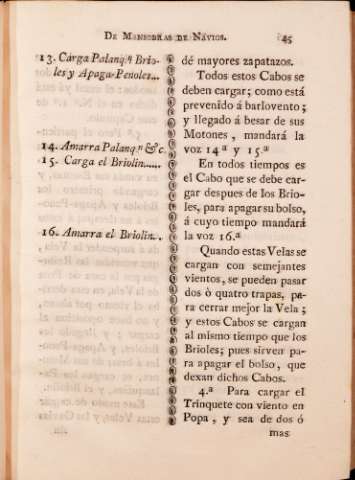 DE MANIOBRAS DE NAVIOS. 45
13. Carga Palanq.n Brio-
les y Apaga-Penoles...
14. Amarra Palanq.n &c.
15. Carga el Briolin......
16. Amarra el Briolin...
dé mayores zapatazos.
Todos estos Cabos se
deben cargar; como está
prevenido á barlovento;
y llegado á besar de sus
Motones, mandará la
voz 14.ª y 15.ª
En todos tiempos es
el Cabo que se debe car-
gar despues de los Brio-
les, para apagar su bolso,
á cuyo tiempo mandará
la voz 16.ª
Quando estas Velas se
cargan con semejantes
vientos, se pueden pasar
dos ò quatro trapas, pa-
ra cerrar mejor la Vela;
y estos Cabos se cargan
al mismo tiempo que los
Brioles; pues sirven pa-
ra apagar el bolso, que
dexan dichos Cabos.
4.ª Para cargar el
Trinquete con viento en
Popa, y sea de dos ó
mas